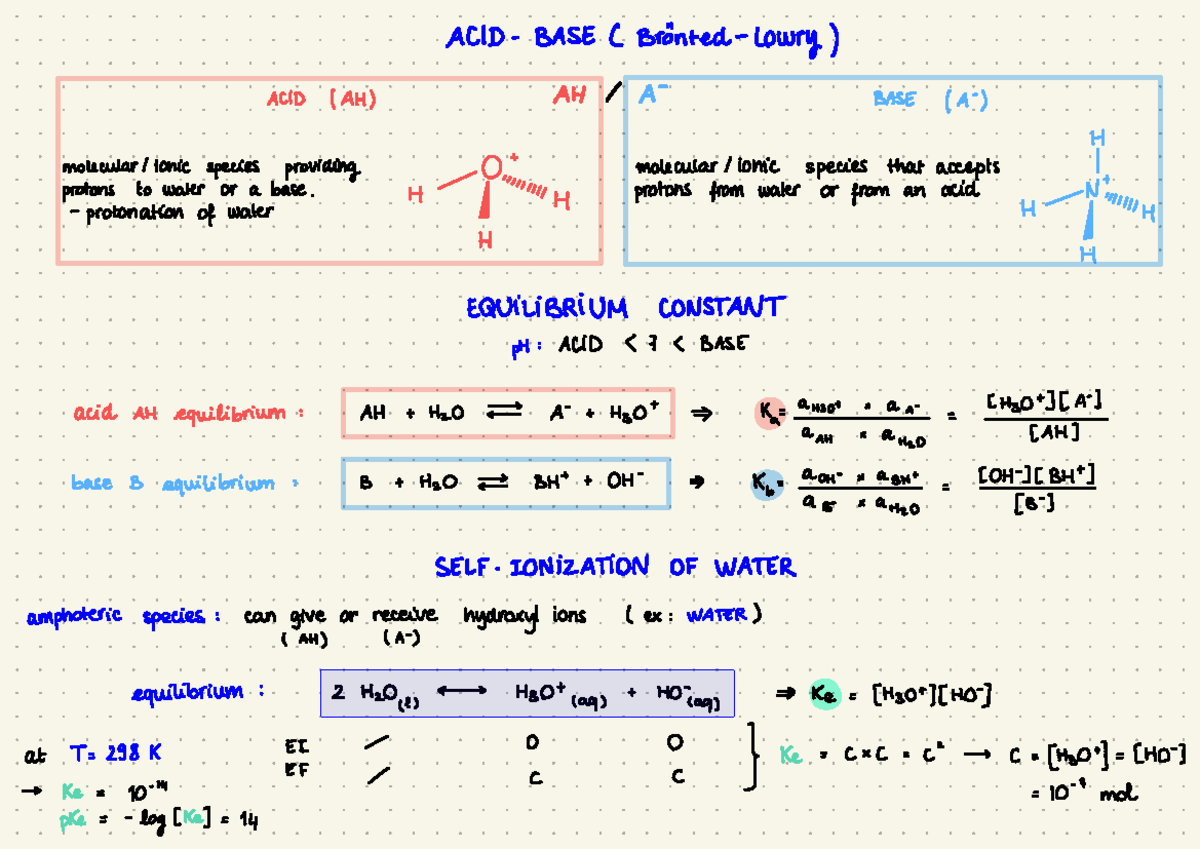 ACID - BASE ( Brönted-Lowry )
ACID (AH) AH / A⁻ BASE (A⁻)
molecular / ionic species providing
protons to water or a base.
- protonation of water
O⁺
H
H
H
molecular / ionic species that accepts
protons from water or from an acid
H
N⁺
H
H
H
EQUILIBRIUM CONSTANT
pH : ACID < 7 < BASE
acid AH equilibrium : AH + H₂O ⇌ A⁻ + H₃O⁺ ⇒ Ka = (a H₃O⁺ × a A⁻) / (a AH × a H₂O) = [H₃O⁺][A⁻] / [AH]
base B equilibrium : B + H₂O ⇌ BH⁺ + OH⁻ ⇒ Kb = (a OH⁻ × a BH⁺) / (a B⁻ × a H₂O) = [OH⁻][BH⁺] / [B⁻]
SELF-IONIZATION OF WATER
amphoteric species : can give or receive hydroxyl ions ( ex : WATER )
(AH) (A⁻)
equilibrium : 2 H₂O(l) ⟷ H₃O⁺(aq) + HO⁻(aq) ⇒ Ke = [H₃O⁺][HO⁻]
at T= 298 K
→ Ke = 10⁻¹⁴
pKe = - log [Ke] = 14
EI / 0 0
EF / C C
} Ke = C×C = C² → C = [H₃O⁺] = [HO⁻]
= 10⁻⁷ mol